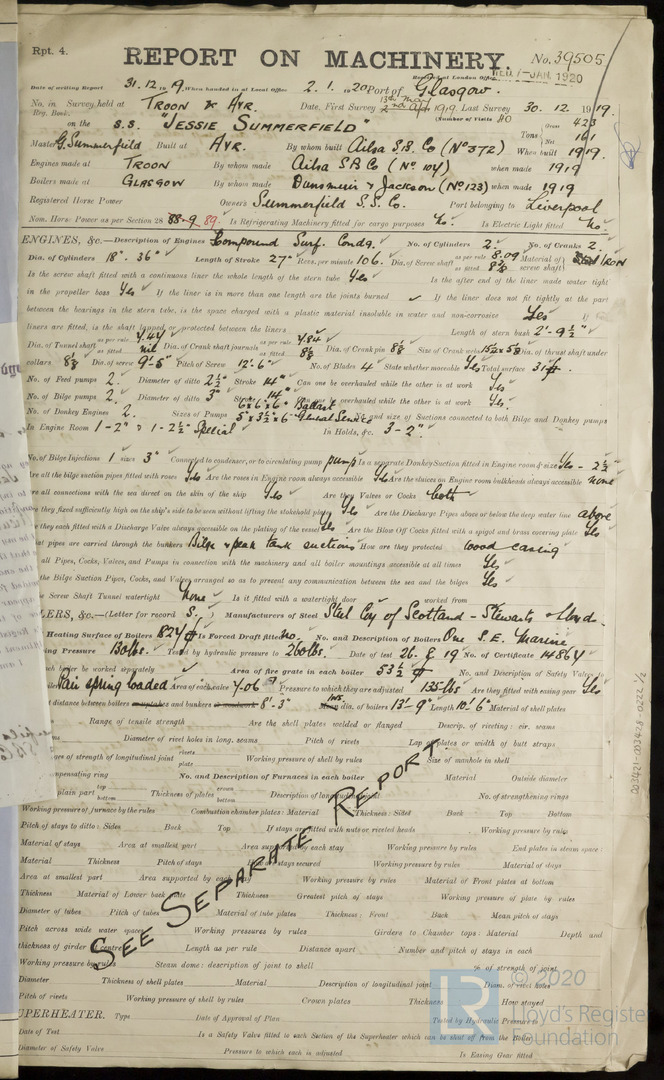 Rpt. 4.
REPORT ON MACHINERY.
No. 39505
Received at London Office WED. 7-JAN 1920
Date of writing Report 31.12.1919. When handed in at Local Office 2.1.1920 Port of Glasgow.
No. in Survey held at TROON & AYR. Date, First Survey 1919. Last Survey 30.12.1919.
Reg. Book. (Number of Visits 40
on the S.S. "JESSIE SUMMERFIELD" Tons Gross 423 Net 161
Master G. Summerfield Built at AYR. By whom built Ailsa S.B. Co (No 372) When built 1919.
Engines made at TROON By whom made Ailsa S.B Co (No 104) when made 1919
Boilers made at GLASGOW By whom made Dunsmuir & Jackson (No 123) when made 1919
Registered Horse Power Owners Summerfield S.S. Co. Port belonging to Liverpool
Nom. Horse Power as per Section 28 88.9 89. Is Refrigerating Machinery fitted for cargo purposes No. Is Electric Light fitted No.
ENGINES, &c.—Description of Engines Compound Surf. Condg. No. of Cylinders 2. No. of Cranks 2.
Dia. of Cylinders 18" - 36" Length of Stroke 27" Revs. per minute 106. Dia. of Screw shaft as per rule 8.09 as fitted 8 3/8 Material of screw shaft IRON
Is the screw shaft fitted with a continuous liner the whole length of the stern tube Yes Is the after end of the liner made water tight
in the propeller boss Yes If the liner is in more than one length are the joints burned If the liner does not fit tightly at the part
between the bearings in the stern tube, is the space charged with a plastic material insoluble in water and non-corrosive Yes If
liners are fitted, is the shaft lapped or protected between the liners Length of stern bush 2'-9½"
Dia. of Tunnel shaft as per rule 7.44 as fitted nil Dia. of Crank shaft journals as per rule 7.84 as fitted 8⅛ Dia. of Crank pin 8⅛ Size of Crank webs 15½ x 5⅛ Dia. of thrust shaft under
collars 8⅛ Dia. of screw 9'-5" Pitch of Screw 12'-6" No. of Blades 4 State whether moveable Yes Total surface 31
No. of Feed pumps 2. Diameter of ditto 2½ Stroke 14" Can one be overhauled while the other is at work Yes
No. of Bilge pumps 2. Diameter of ditto 3" Stroke 14" Can one be overhauled while the other is at work Yes.
No. of Donkey Engines 2. Sizes of Pumps 6 x 6 x 6 Ballast 5 x 3½ x 6 General Service No. and size of Suctions connected to both Bilge and Donkey pumps
In Engine Room 1 - 2" & 1 - 2½" Special In Holds, &c. 3 - 2".
No. of Bilge Injections 1 sizes 3" Connected to condenser, or to circulating pump pump Is a separate Donkey Suction fitted in Engine room & size Yes - 2½
Are all the bilge suction pipes fitted with roses Yes Are the roses in Engine room always accessible Yes Are the sluices on Engine room bulkheads always accessible none
are all connections with the sea direct on the skin of the ship Yes Are they Valves or Cocks both
they fixed sufficiently high on the ship's side to be seen without lifting the stokehold plates Yes Are the Discharge Pipes above or below the deep water line above
they each fitted with a Discharge Valve always accessible on the plating of the vessel Yes Are the Blow Off Cocks fitted with a spigot and brass covering plate Yes
at pipes are carried through the bunkers Bilge & peak tank suctions How are they protected wood casing
all Pipes, Cocks, Valves, and Pumps in connection with the machinery and all boiler mountings accessible at all times Yes
the Bilge Suction Pipes, Cocks, and Valves arranged so as to prevent any communication between the sea and the bilges Yes
Screw Shaft Tunnel watertight None Is it fitted with a watertight door worked from
LERS, &c.—(Letter for record S.) Manufacturers of Steel Steel Coy of Scotland - Stewarts & Lloyds.
Heating Surface of Boilers 1824 Is Forced Draft fitted no. No. and Description of Boilers One S.E. Marine
ing Pressure 130 lbs. Tested by hydraulic pressure to 260 lbs. Date of test 26. 8. 19 No. of Certificate 14864
each boiler be worked separately Area of fire grate in each boiler 53½ No. and Description of Safety Valves to
boiler Pair spring loaded Area of each valve 7.06 Pressure to which they are adjusted 135 lbs Are they fitted with easing gear Yes
distance between boilers and bunkers 8'-3" INS. dia. of boilers 13'-9" Length 10'-6" Material of shell plates
Range of tensile strength Are the shell plates welded or flanged Descrip. of riveting: cir. seams
seams Diameter of rivet holes in long. seams Pitch of rivets Lap of plates or width of butt straps
centages of strength of longitudinal joint rivets plate Working pressure of shell by rules Size of manhole in shell
compensating ring No. and Description of Furnaces in each boiler Material Outside diameter
plain part top bottom Thickness of plates crown bottom Description of longitudinal joint No. of strengthening rings
Working pressure of furnace by the rules Combustion chamber plates: Material Thickness: Sides Back Top Bottom
Pitch of stays to ditto: Sides Back Top If stays are fitted with nuts or riveted heads Working pressure by rules
Material of stays Area at smallest part Area supported by each stay Working pressure by rules End plates in steam space:
Material Thickness Pitch of stays How are stays secured Working pressure by rules Material of stays
Area at smallest part Area supported by each stay Working pressure by rules Material of Front plates at bottom
Thickness Material of Lower back plate Thickness Greatest pitch of stays Working pressure of plate by rules
Diameter of tubes Pitch of tubes Material of tube plates Thickness: Front Back Mean pitch of stays
Pitch across wide water spaces Working pressures by rules Girders to Chamber tops: Material Depth and
thickness of girder at centre Length as per rule Distance apart Number and pitch of stays in each
Working pressure by rules Steam dome: description of joint to shell % of strength of joint
Diameter Thickness of shell plates Material Description of longitudinal joint Diam. of rivet holes
Pitch of rivets Working pressure of shell by rules Crown plates Thickness How stayed
SUPERHEATER. Type Date of Approval of Plan Tested by Hydraulic Pressure to
Date of Test Is a Safety Valve fitted to each Section of the Superheater which can be shut off from the Boiler
Diameter of Safety Valve Pressure to which each is adjusted Is Easing Gear fitted
SEE SEPARATE REPORT
003421-003428-0222 1/2
© 2020
Lloyd's Register
Foundation